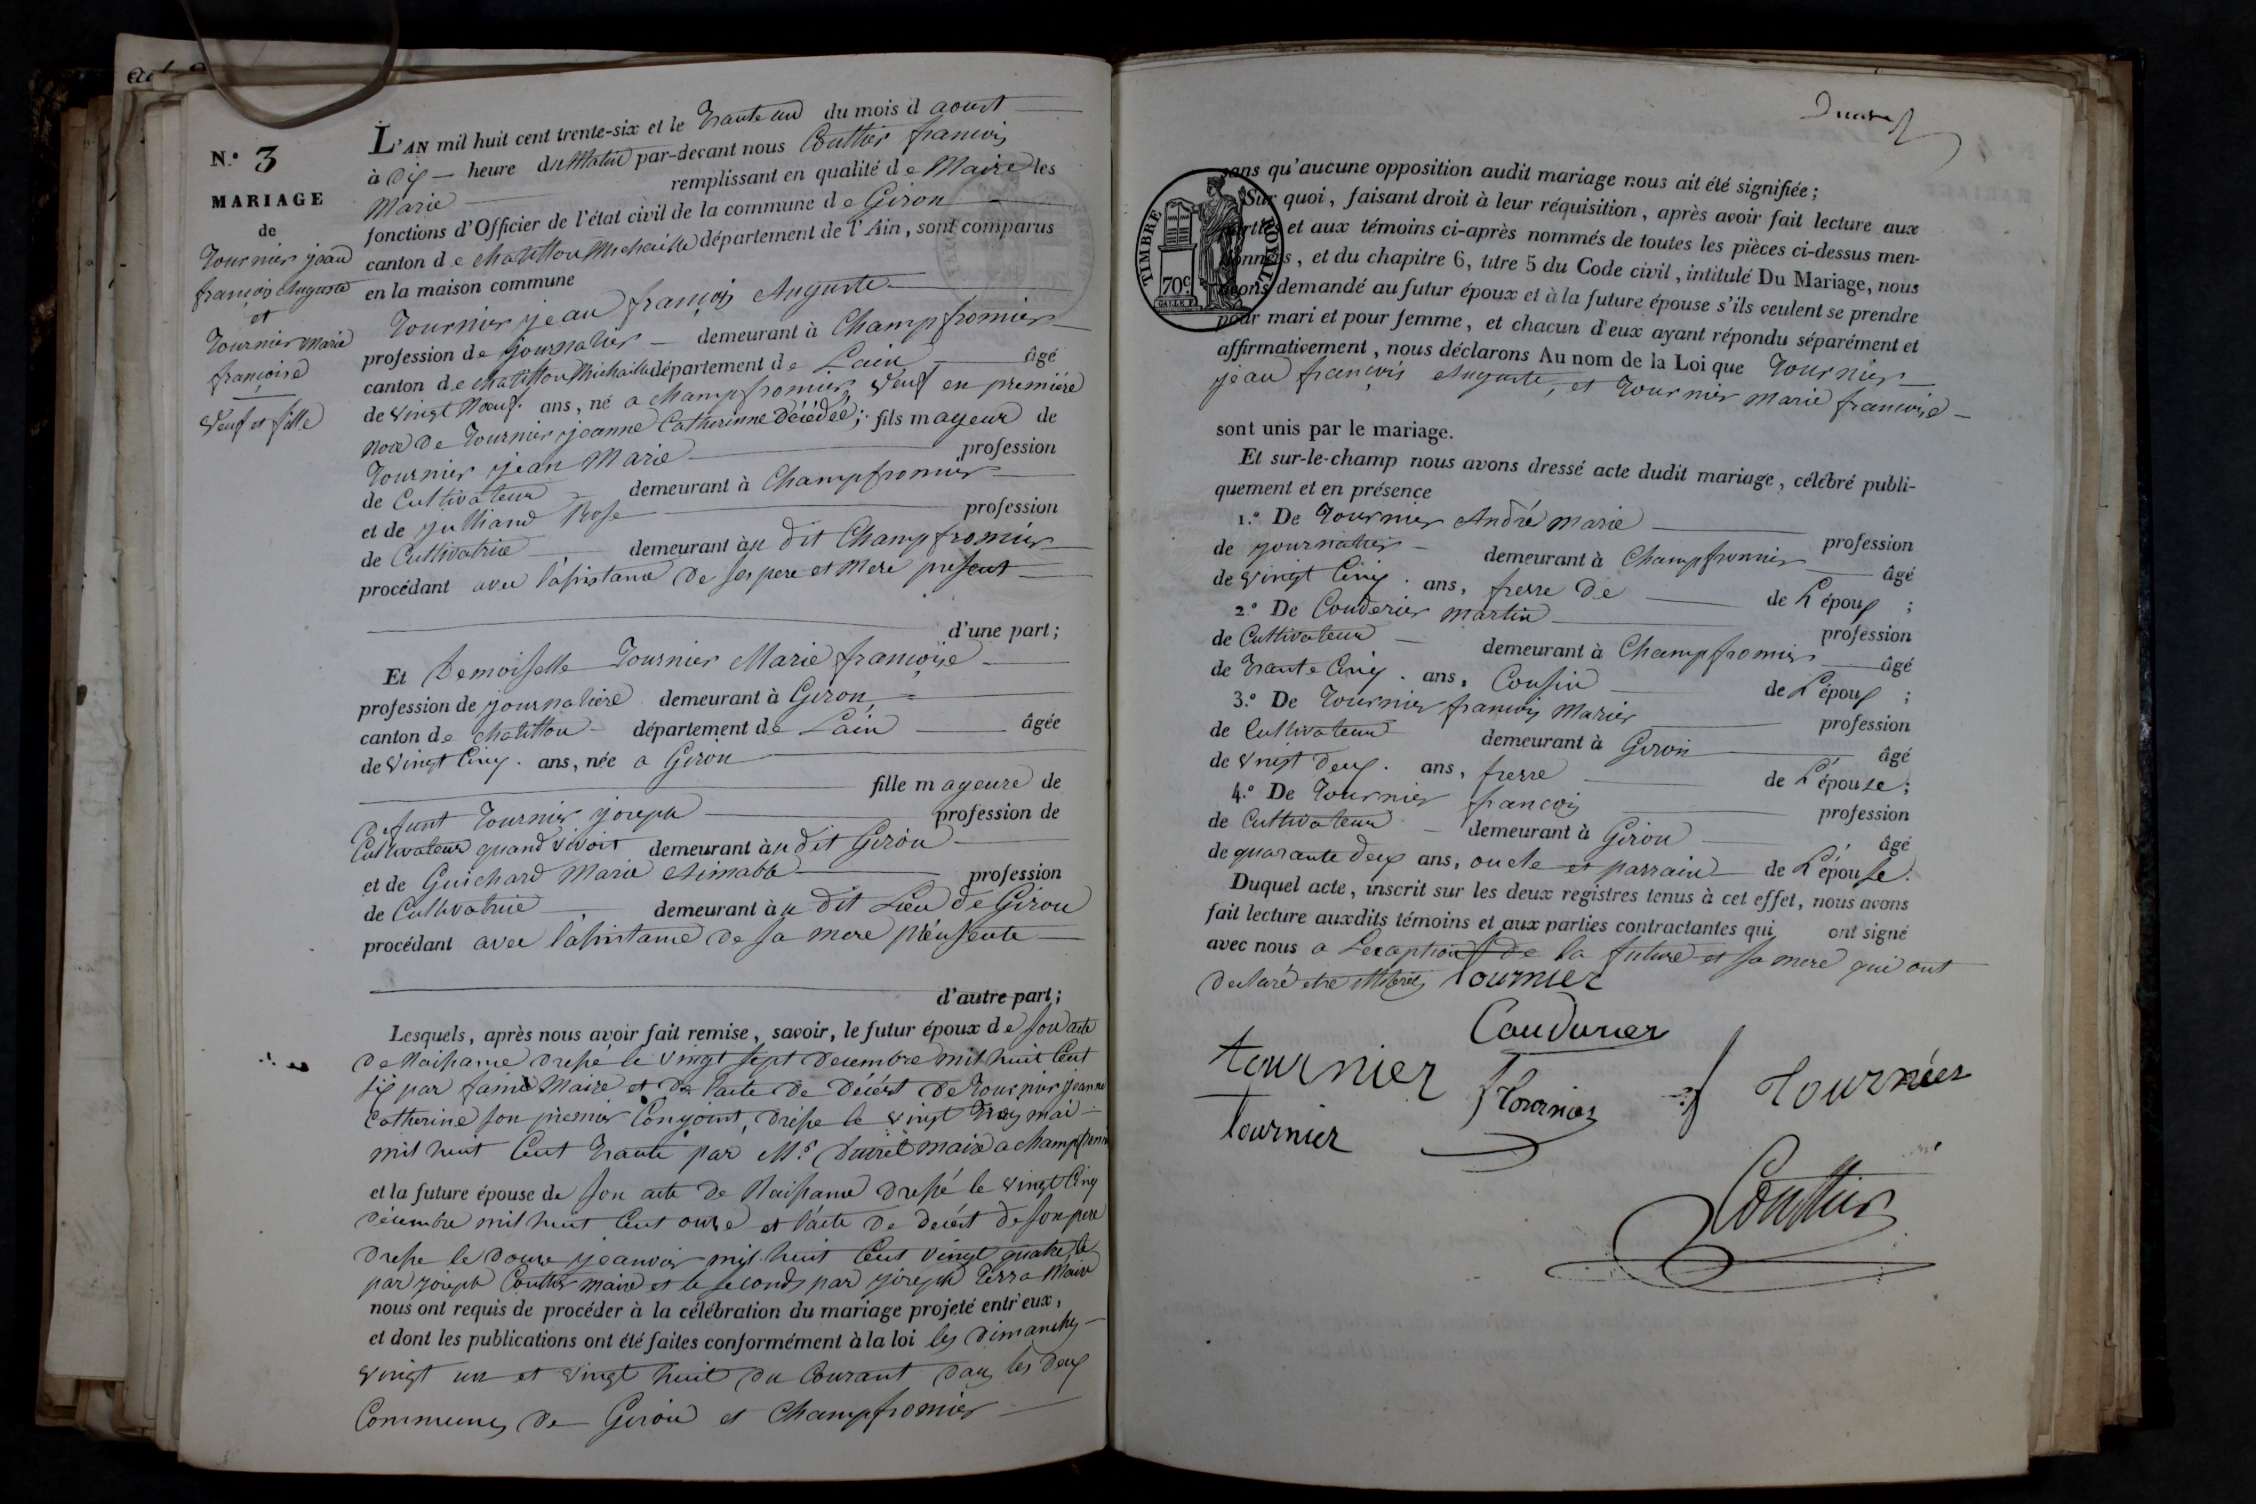 N.° 3
MARIAGE
de
Tournier jean
françois Auguste
et
Tournier Marie
françoise
Veuf et fille
L'AN mil huit cent trente-six et le Trante und du mois d aoust
à Dix heure du Matin par-devant nous Coutier francois
Marie remplissant en qualité de Maire les
fonctions d'Officier de l'état civil de la commune de Giron
canton de chatillon Michaille département de l'Ain, sont comparus
en la maison commune
Tournier jean françois Auguste
profession de journalier demeurant à Champfromier
canton de chatillon Michaille département de Lain âgé
de vingt Noeuf. ans, né a champfromier, veuf en premiére
Noce De Tournier jeanne Catherinne Décédée; fils mayeur de
Tournier jean Marie profession
de Cultivateur demeurant à Champfromier
et de julliand Rose profession
de Cultivatrice demeurant àu dit Champfromier
procédant avec l'assistance De ses pere et Mere present
d'une part;
Et Demoiselle Tournier Marie françoise
profession de journaliere demeurant à Giron
canton de chatillon département de Lain âgée
de vingt Cinq. ans, née a Giron
fille mayeure de
Defunt Tournier joseph profession de
Cultivateur quand vivoit demeurant àu dit Giron
et de Guichard Marie Aimable profession
de Cultivatrice demeurant àu dit Lieu de Giron
procédant avec l'assistance de sa mere présente
d'autre part;
Lesquels, après nous avoir fait remise, savoir, le futur époux de son acte
De Naissance dressé le vingt sept decembre mil huit Cent
six par Maire et De l'acte De Décést De Tournier jeanne
Catherine son premier Conjoint, dresse le vingt Trois mai
mil huit Cent Trante par Mr. Ducret maire a champfromier
et la future épouse de son acte De Naissance dressé le vingt Cinq
décembre mil huit Cent onze et l'acte De decést De son pere
dresse le douze jeanvier mil huit Cent vingt quatre, le
par joseph Coutier maire et le seconds par joseph Perra Maire
nous ont requis de procéder à la célébration du mariage projeté entr'eux,
et dont les publications ont été faites conformément à la loi les dimanches
vingt un et vingt huit du Courant dans les deux
Communes De Giron et Champfromier
TIMBRE ROYAL
70c
sans qu'aucune opposition audit mariage nous ait été signifiée;
Sur quoi, faisant droit à leur réquisition, après avoir fait lecture aux
parties et aux témoins ci-après nommés de toutes les pièces ci-dessus men-
tionnées, et du chapitre 6, titre 5 du Code civil, intitulé Du Mariage, nous
avons demandé au futur époux et à la future épouse s'ils veulent se prendre
pour mari et pour femme, et chacun d'eux ayant répondu séparément et
affirmativement, nous déclarons Au nom de la Loi que Tournier
jean françois Auguste, et Tournier Marie francoise
sont unis par le mariage.
Et sur-le-champ nous avons dressé acte dudit mariage, célébré publi-
quement et en présence
1.° De Tournier André marie profession
de journalier demeurant à Champfromier âgé
de vingt Cinq. ans, frere De de L'époux;
2.° De Couderier Martin profession
de Cultivateur demeurant à Champfromier âgé
de Trante Cinq. ans, Cousin de L'époux;
3.° De Tournier francois Marier profession
de Cultivateur demeurant à Giron âgé
de vingt deux. ans, frerre de L'épouse;
4.° De Tournier francois profession
de Cultivateur demeurant à Giron âgé
de quarante deux ans, oncle et parrain de L'épouse.
Duquel acte, inscrit sur les deux registres tenus à cet effet, nous avons
fait lecture auxdits témoins et aux parties contractantes qui ont signé
avec nous a Lexaption De la future et sa mere qui ont
declaré etre Tournier
Caudurier
tournier
Tournier
tournier
f Tournier
Couttier